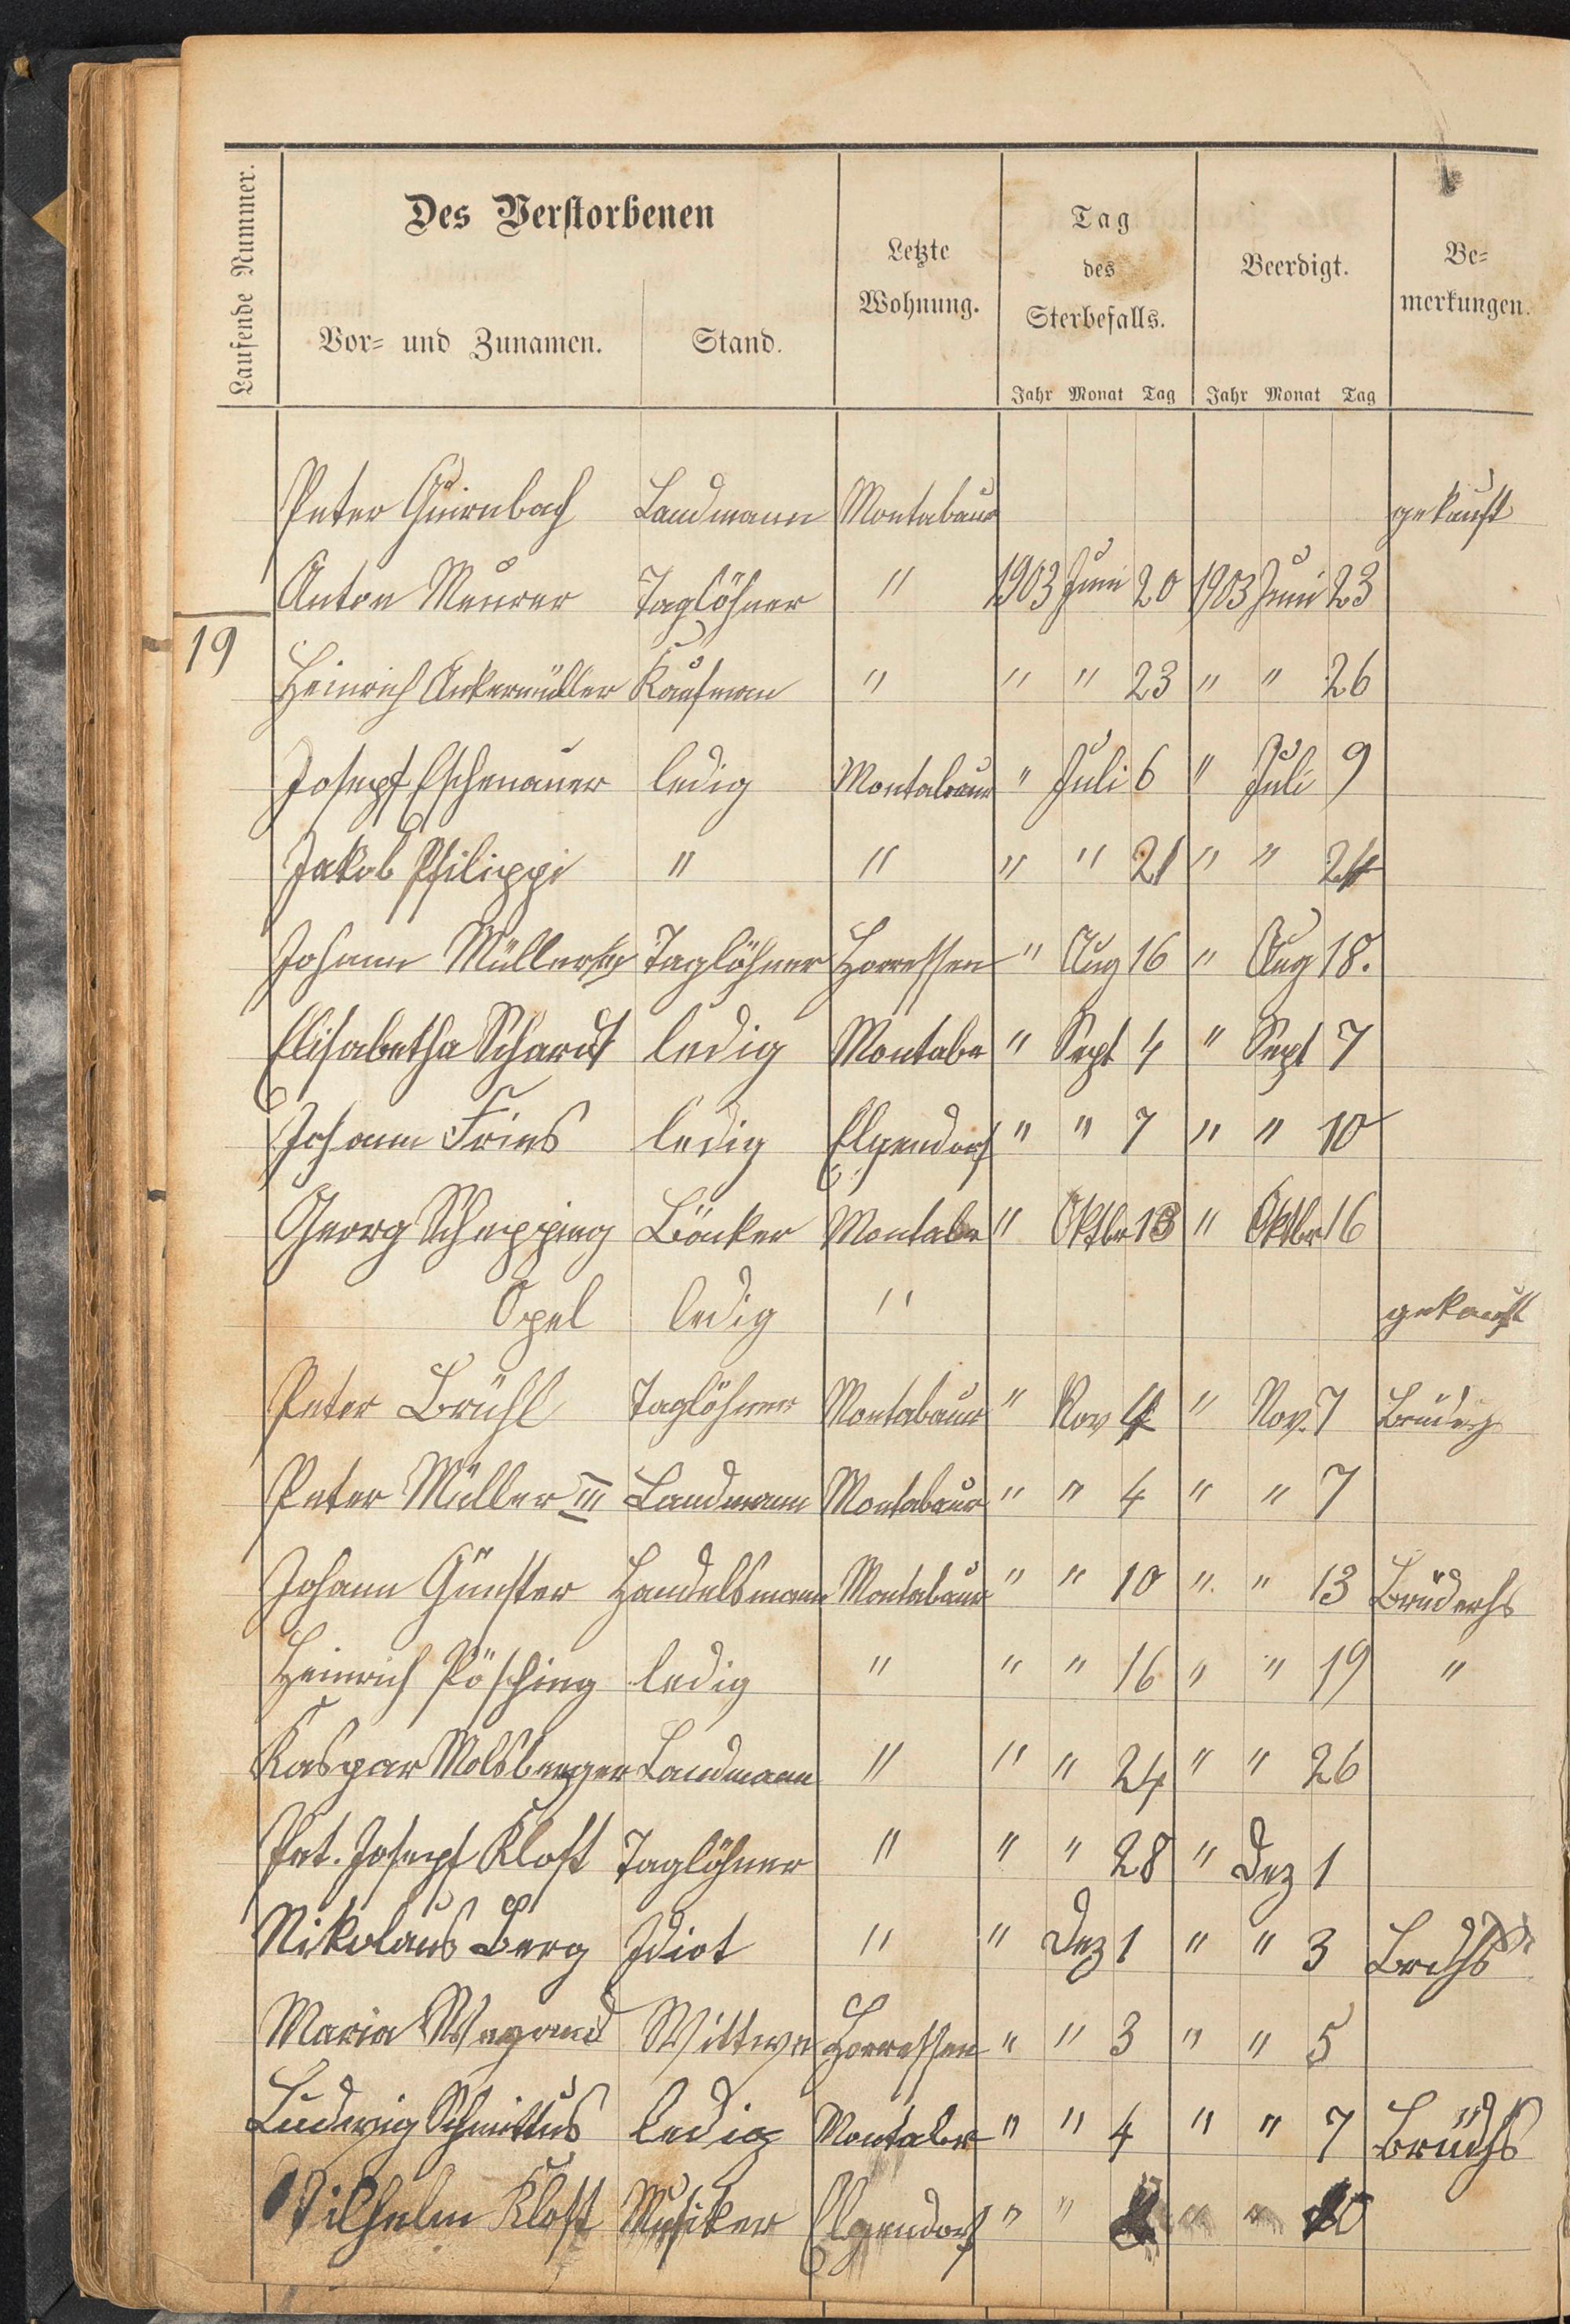 Laufende Nummer.
Des Verstorbenen
Vor- und Zunamen.
Stand.
Letzte
Wohnung.
Tag
des
Sterbefalls.
Jahr Monat Tag
Beerdigt.
Jahr Monat Tag
Be-
merkungen.
Peter Quirnbach Landmann Montabaur gekauft
Anton Meurer Taglöhner " 1903 Juni 20 1903 Juni 23
19
Heinrich Ankermüller Kaufman " " " 23 " " 26
Joseph Eschenauer ledig Montabaur " Juli 6 " Juli 9
Jakob Philippi " " " " 21 " " 24
Johann Müller Taglöhner Horressen " Aug 16 " Aug 18.
Elisabetha Schardt ledig Montabr " Sept 4 " Sept 7
Johann Fries ledig Elgendorf " " 7 " " 10
Georg Schepping Bäcker Montabr " Oktbr 13 " Oktbr 16
Opel ledig " gekauft
Peter Brühl Taglöhner Montabaur " Nov 4 " Nov. 7
Peter Müller III Landmann Montabaur " " 4 " " 7
Johann Günster Handelsmann Montabaur " " 10 " " 13 Brüderhs
Heinrich Pösching ledig " " " 16 " " 19 "
Kaspar Molsberger Landmann " " " 24 " " 26
Pet. Joseph Kloft Taglöhner " " " 28 " Dez 1
Nikolaus Berg Idiot " " Dez 1 " " 3 Brdhs
Maria Wegand Wittwe Horressen " " 3 " " 5
Ludwig Schmittus ledig Montabr " " 4 " " 7 Brüdhs
Wilhelm Kloft Musiker Elgendorf " " " " 10